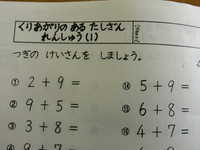 くりあがりの ある たしざん
れんしゅう(1)
つぎの けいさんを しましょう。
① 2+9=
② 9+5=
③ 3+8=
⑭ 5+9=
⑮ 6+8=
⑯ 4+7=